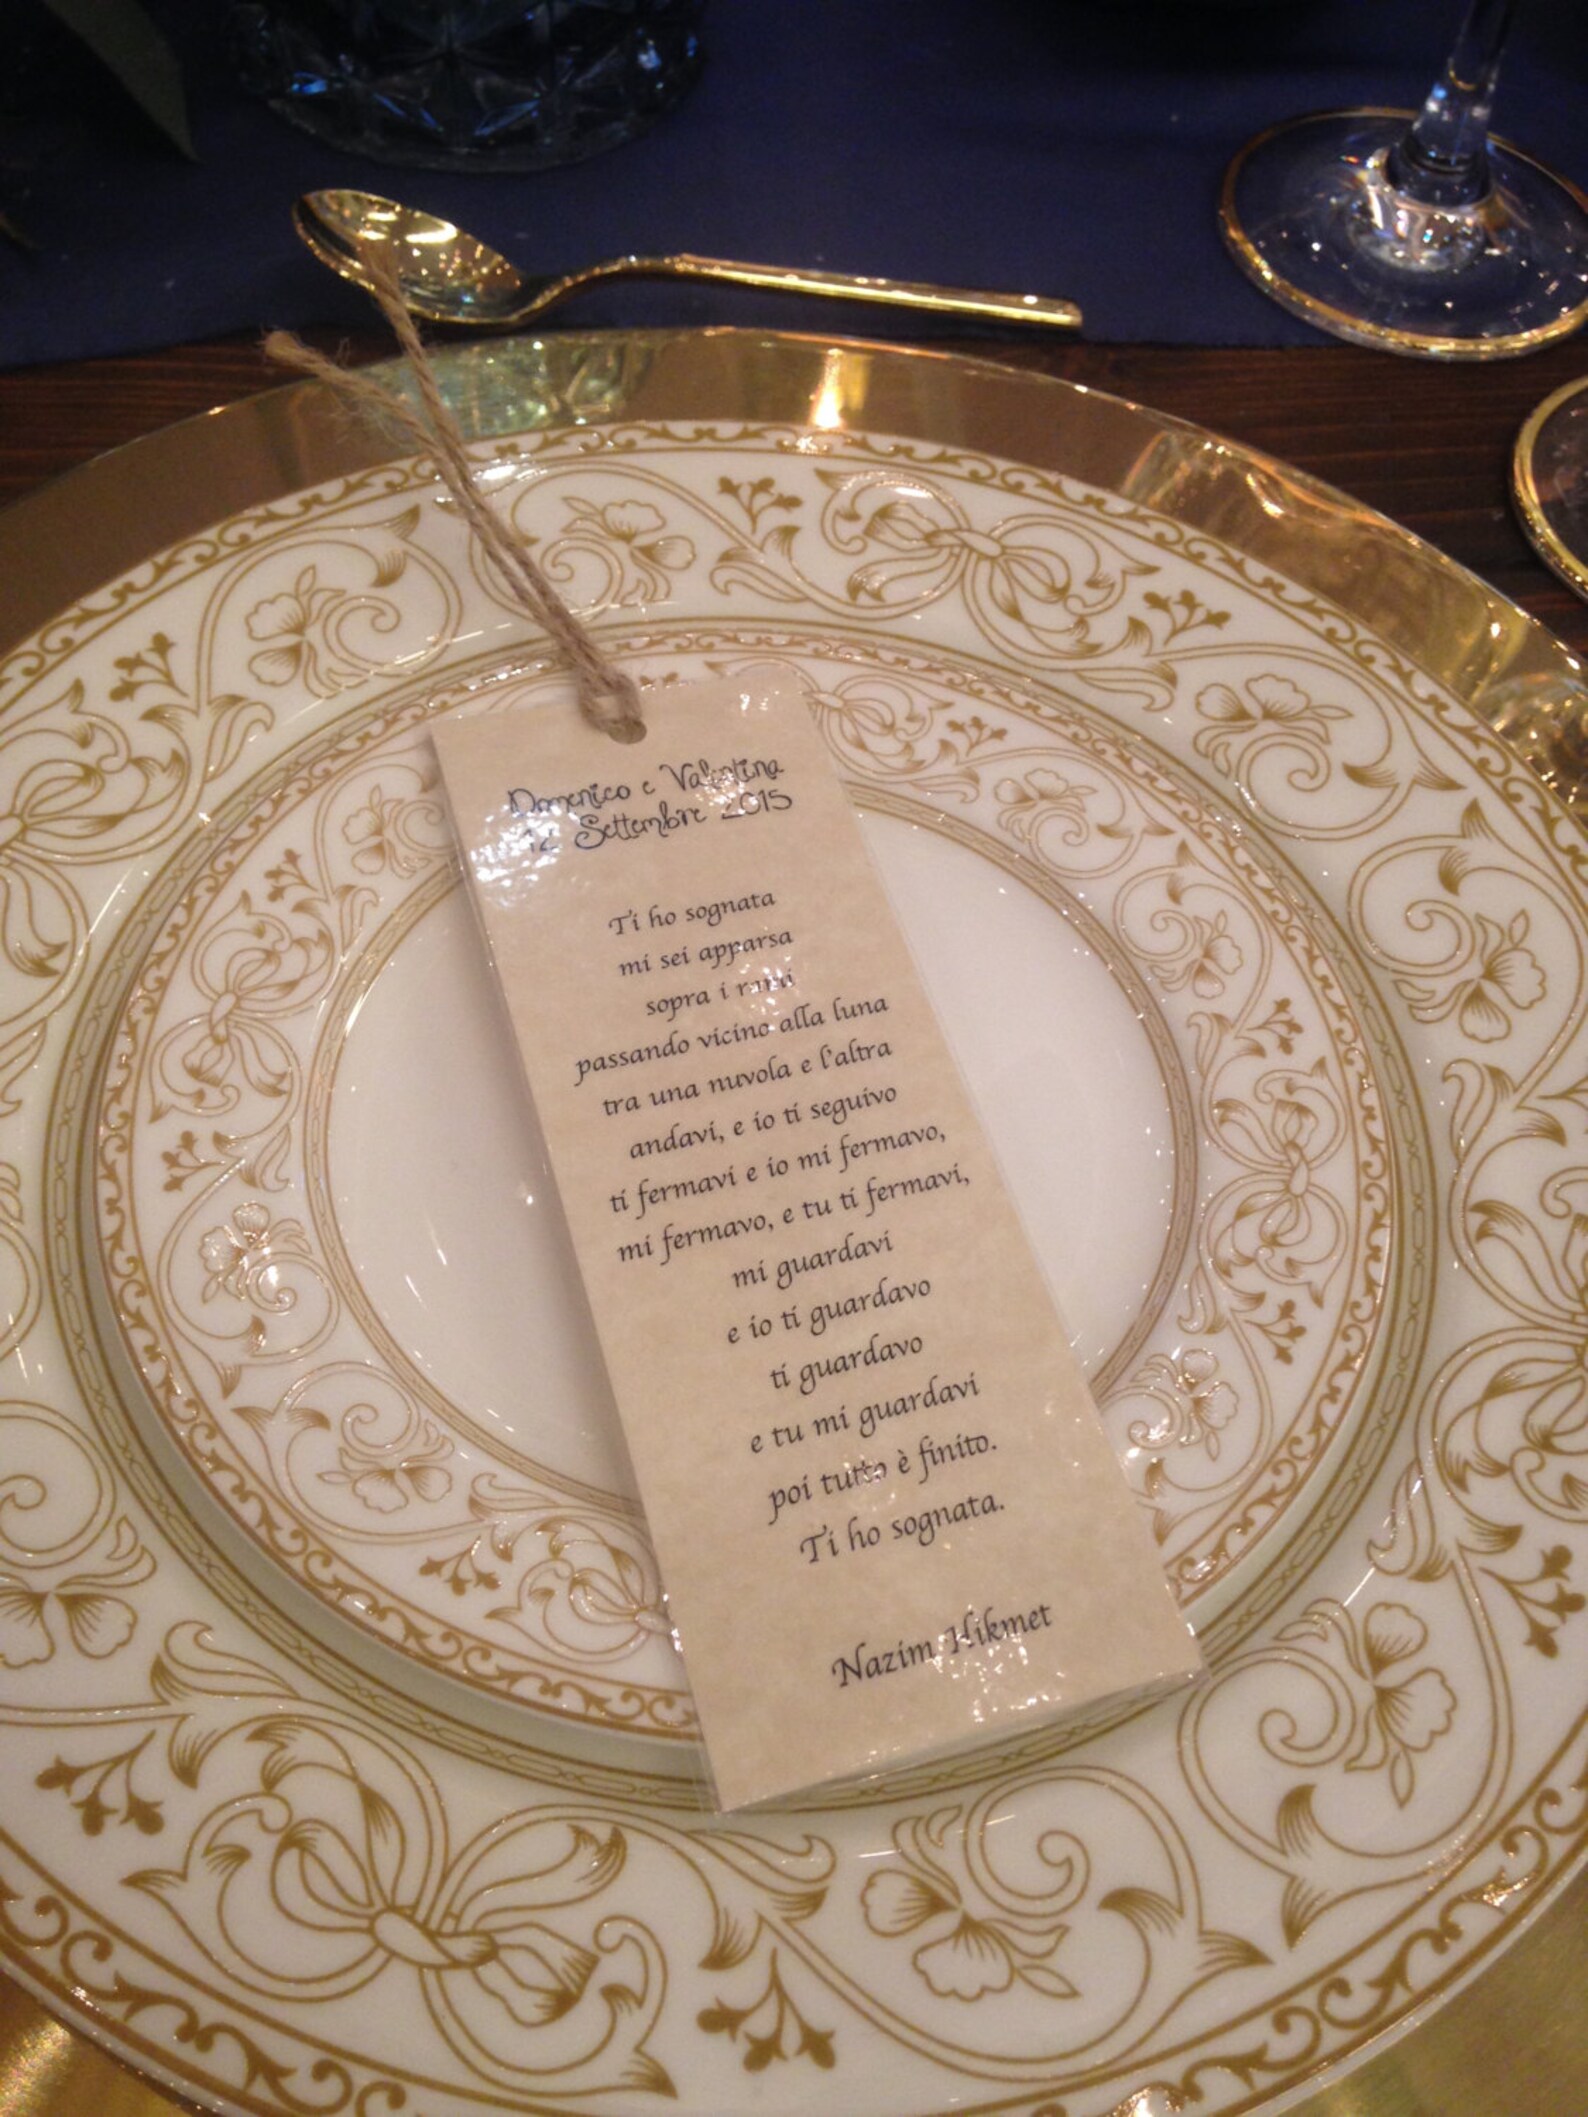 Domenico e Valentina
12 Settembre 2015
Ti ho sognata
mi sei apparsa
sopra i rami
passando vicino alla luna
tra una nuvola e l'altra
andavi, e io ti seguivo
ti fermavi e io mi fermavo,
mi fermavo, e tu ti fermavi,
mi guardavi
e io ti guardavo
ti guardavo
e tu mi guardavi
poi tutto è finito.
Ti ho sognata.
Nazim Hikmet